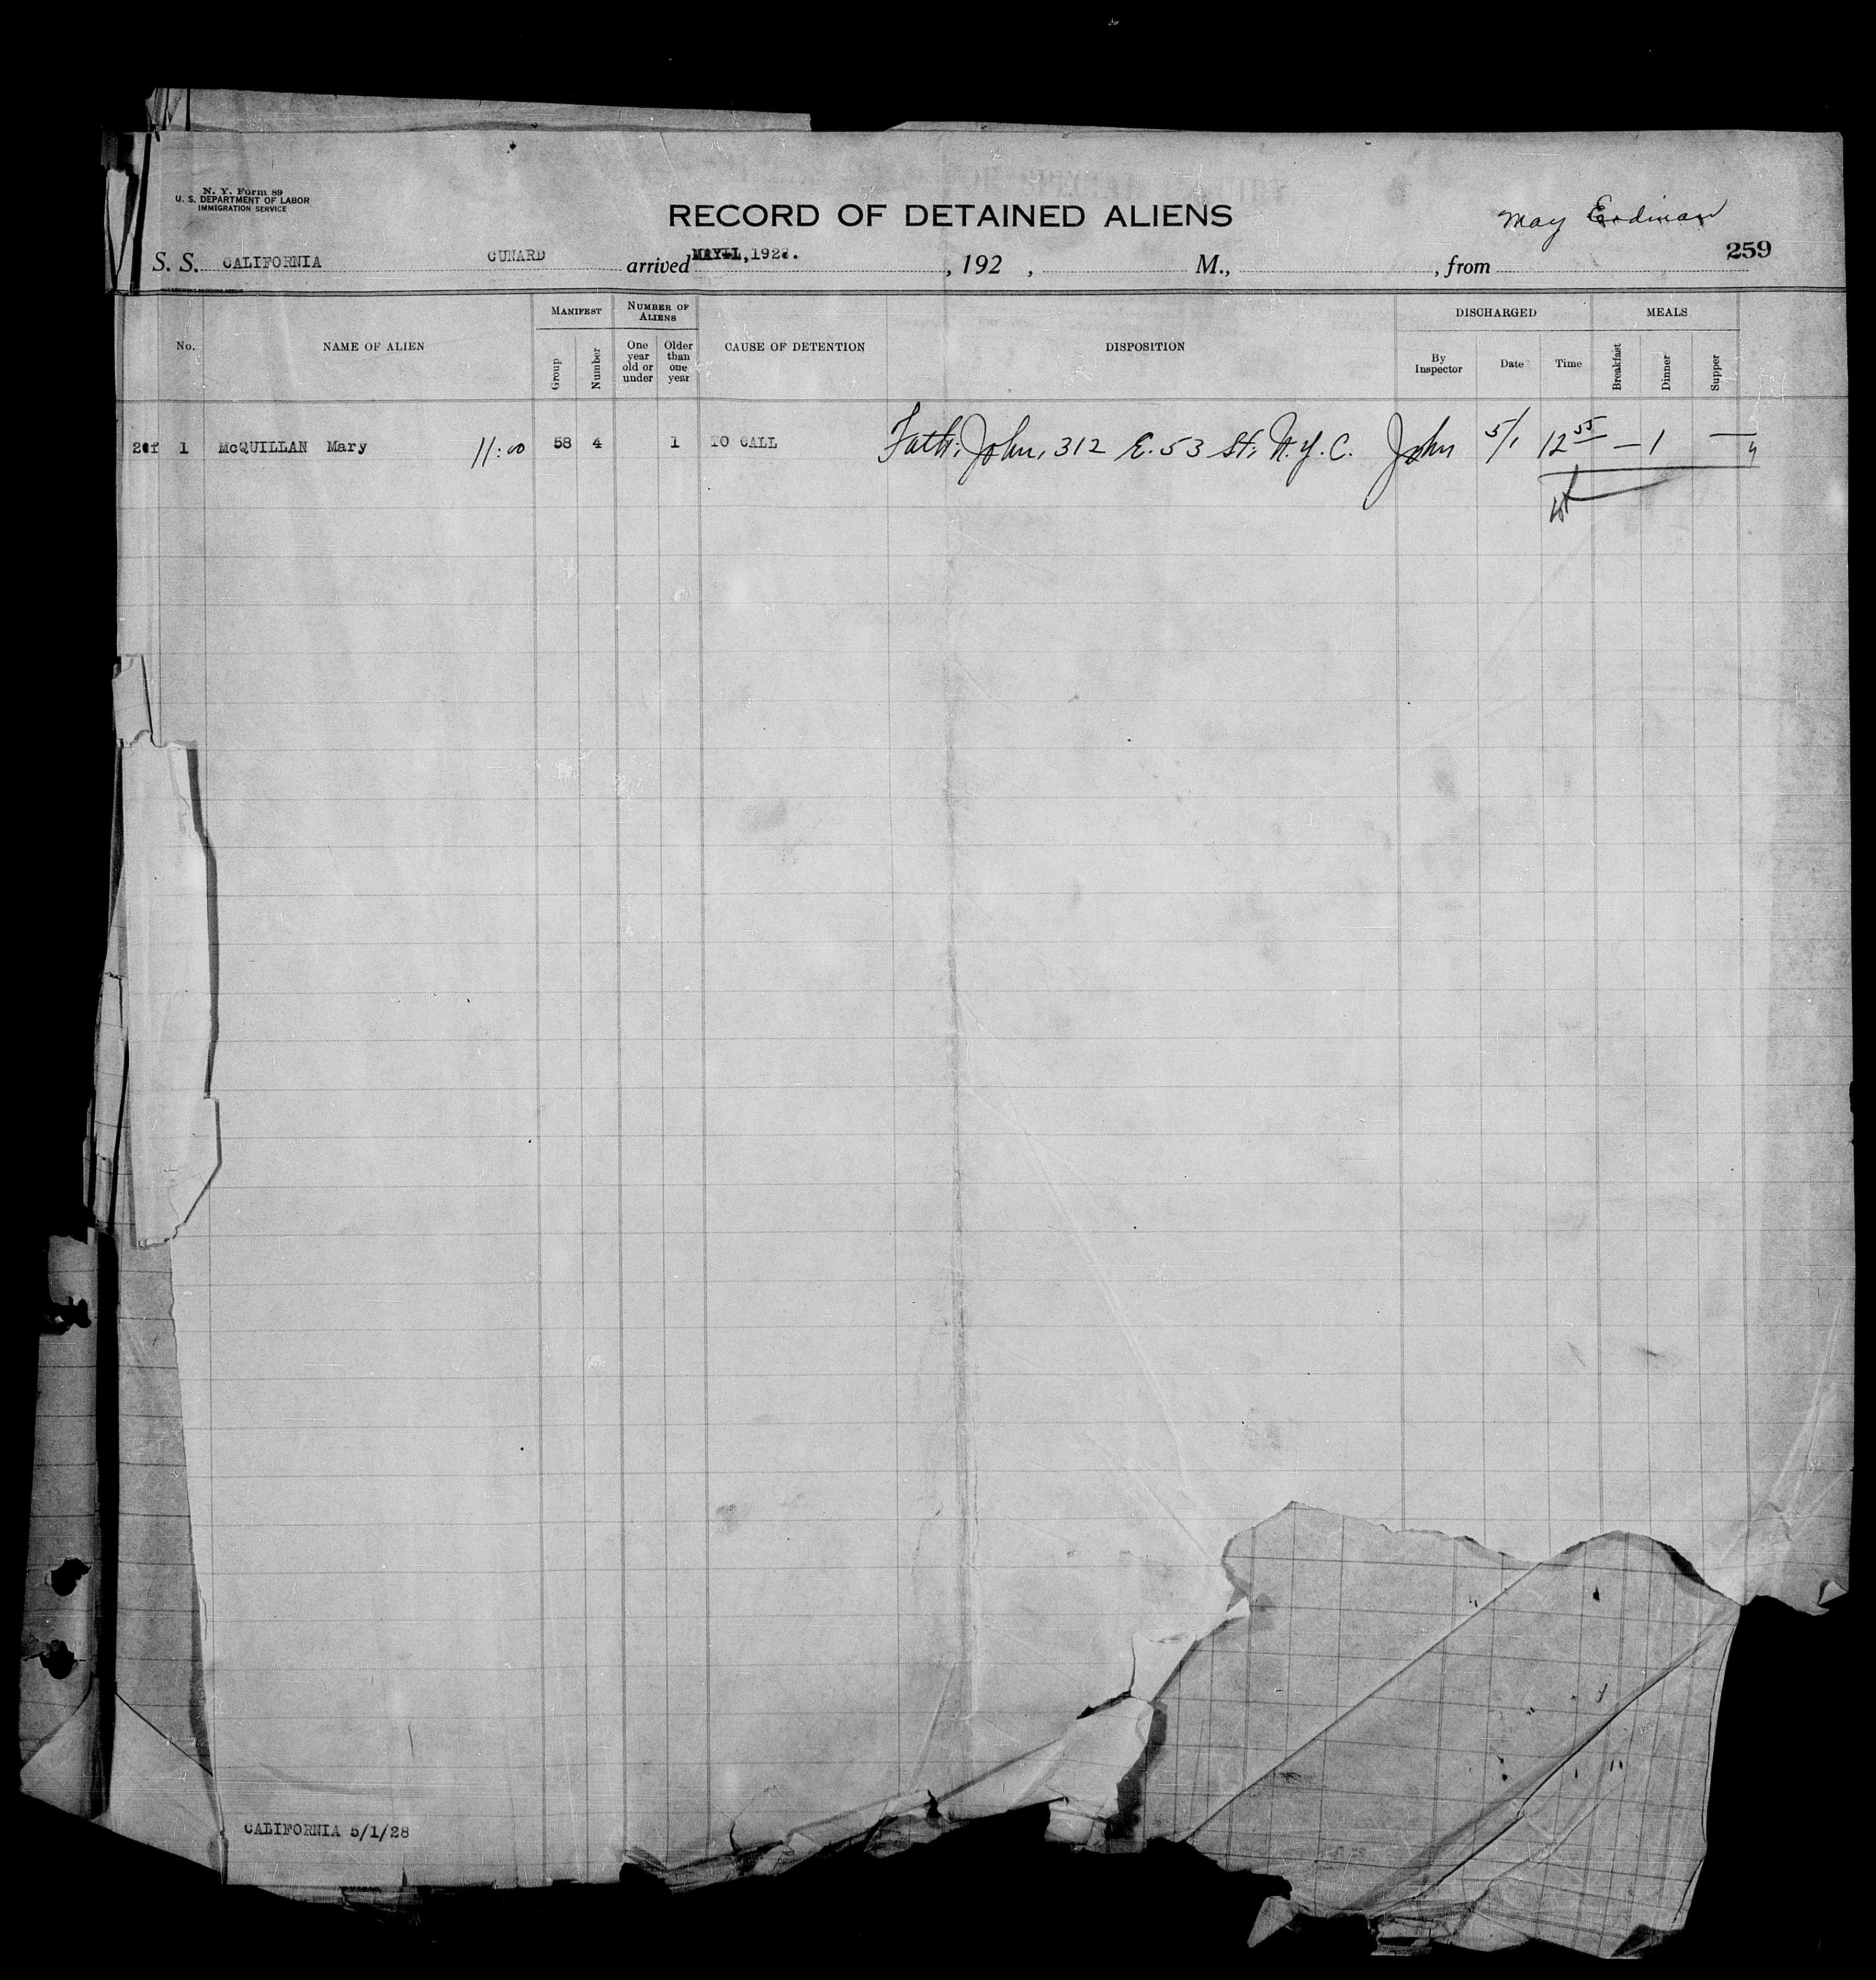 N. Y. Form 89
U. S. DEPARTMENT OF LABOR
IMMIGRATION SERVICE
RECORD OF DETAINED ALIENS
May Erdman
259
S. S. CALIFORNIA CUNARD arrived MAY 1, 1928. , 192 , M., , from
No. NAME OF ALIEN MANIFEST Group Number NUMBER OF ALIENS One year old or under Older than one year CAUSE OF DETENTION DISPOSITION DISCHARGED By Inspector Date Time MEALS Breakfast Dinner Supper
1 McQUILLAN Mary 11:00 58 4 1 TO CALL Fath: John, 312 E. 53 St; N.Y.C. John 5/1 12 55 — 1 —
CALIFORNIA 5/1/28